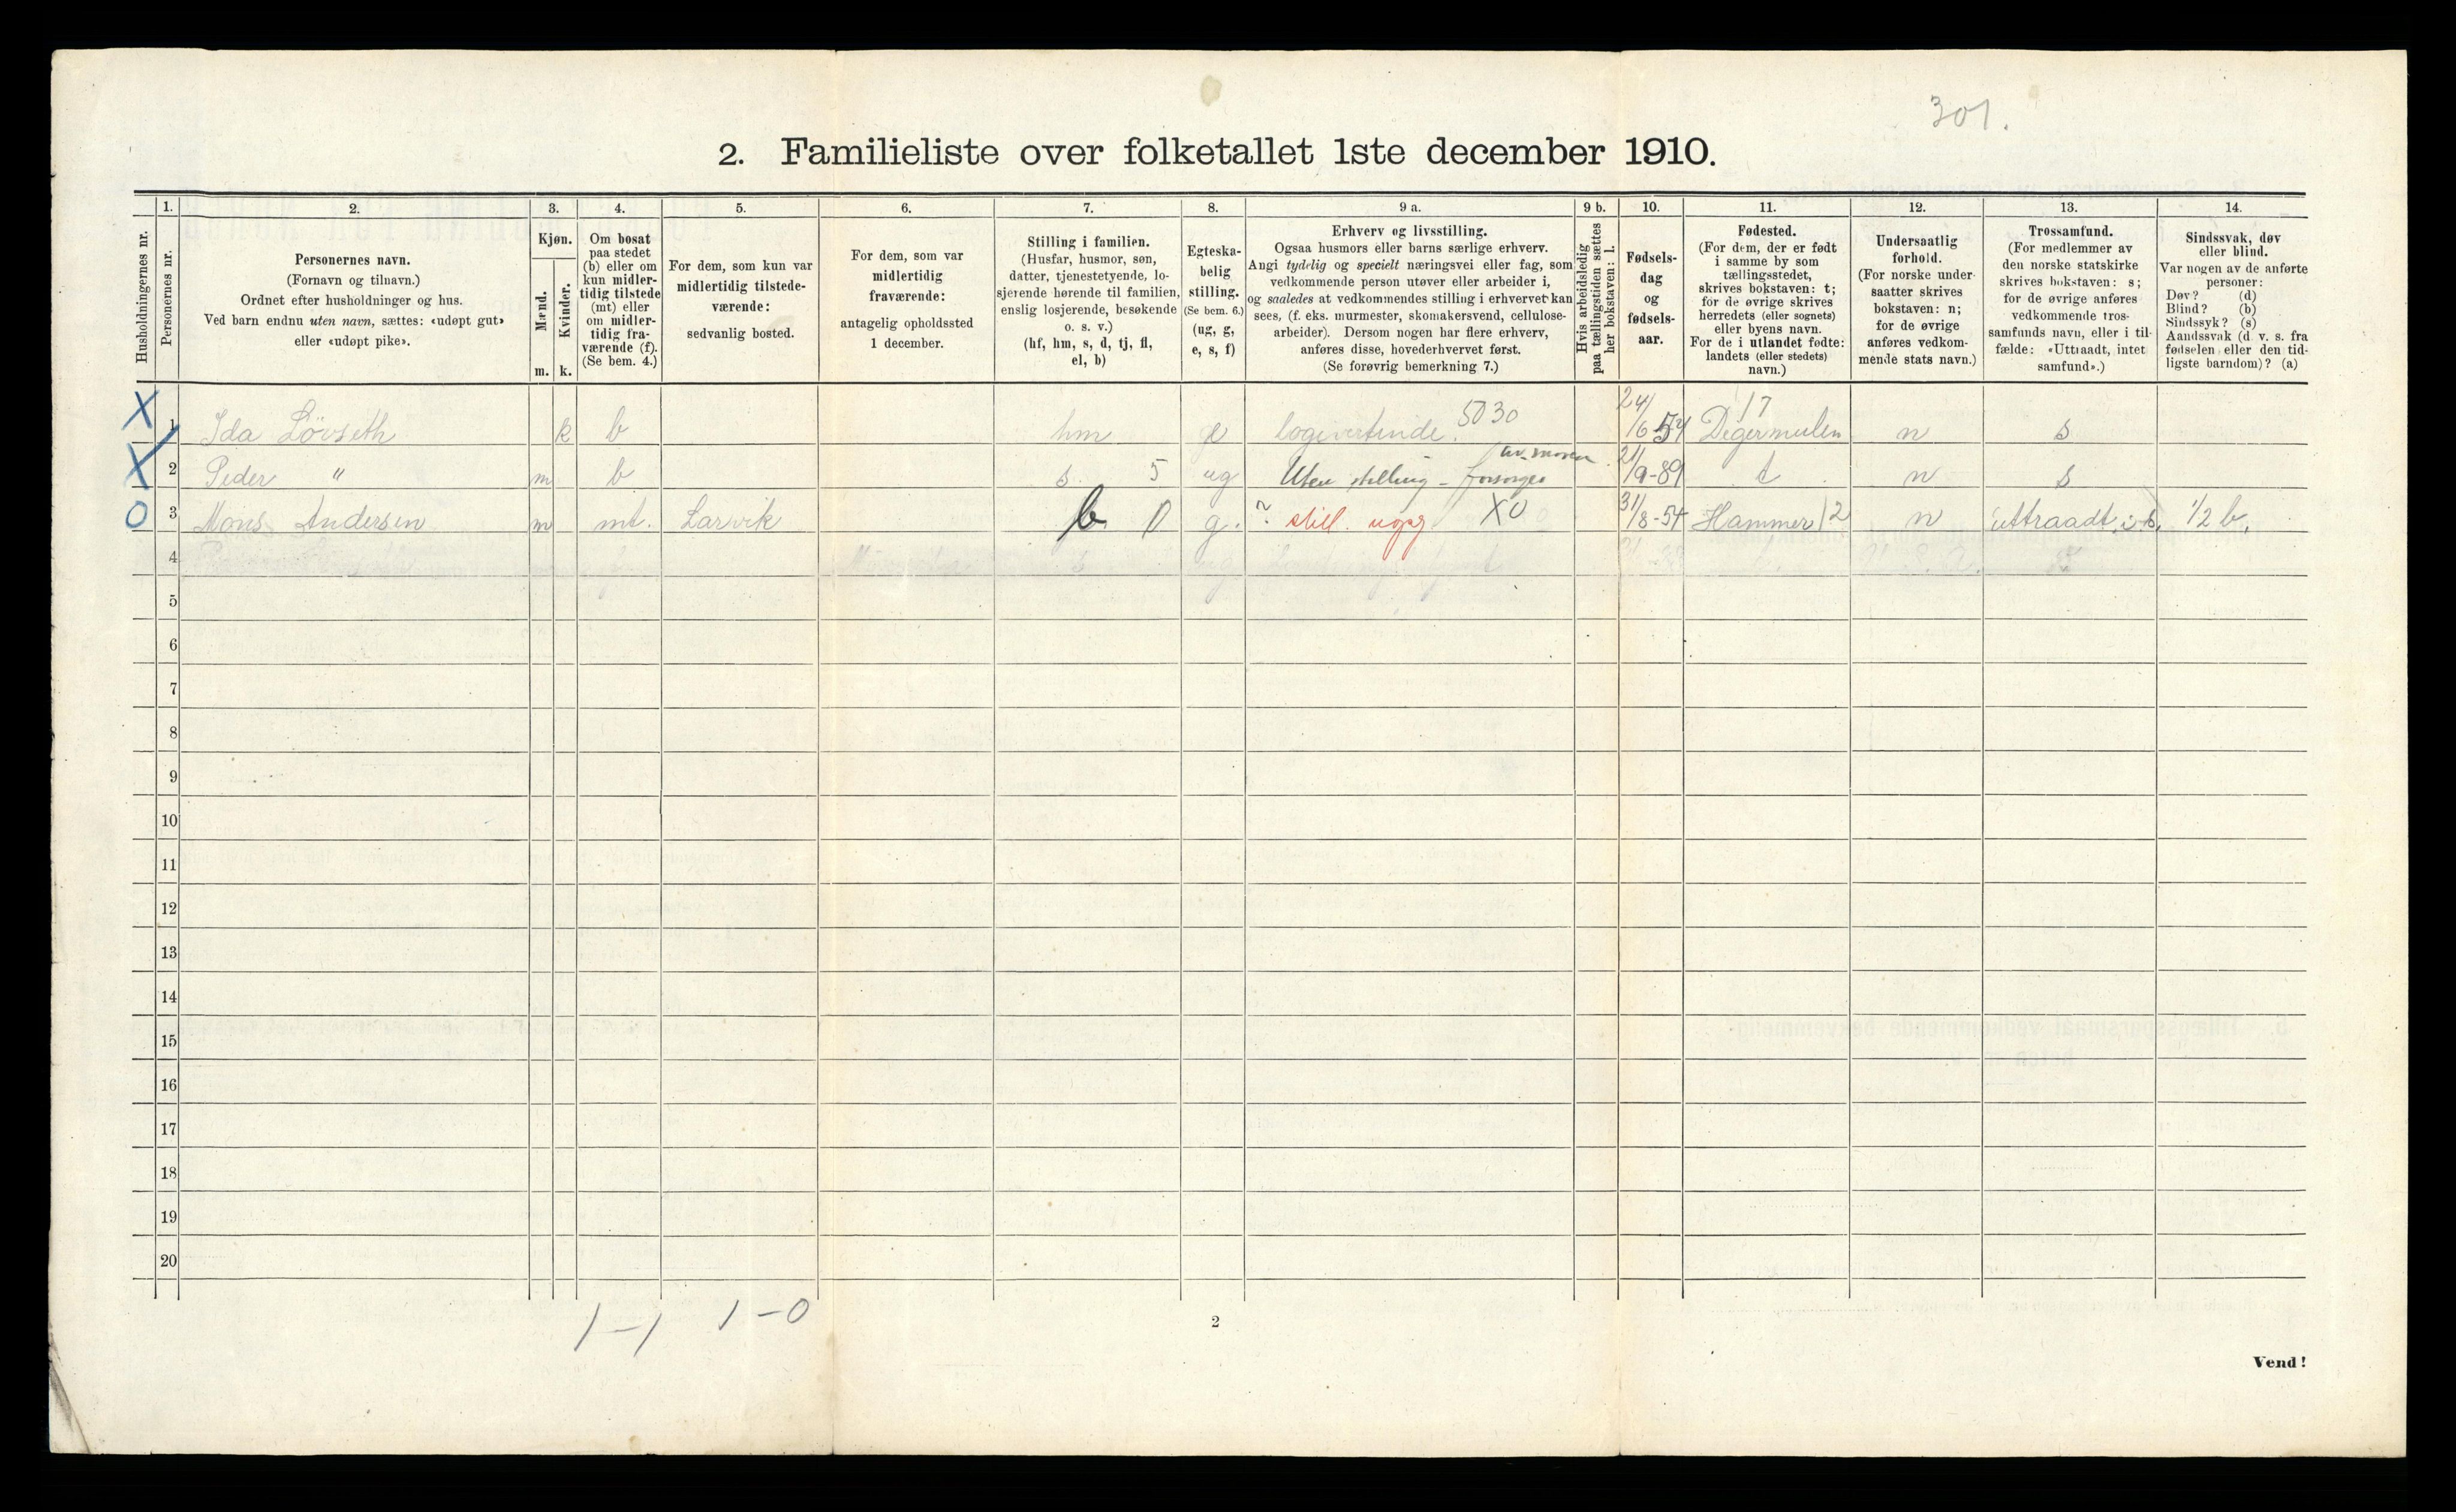 301.
2. Familieliste over folketallet 1ste december 1910.
Husholdningernes nr.
1.
Personernes nr.
2.
Personernes navn.
(Fornavn og tilnavn.)
Ordnet efter husholdninger og hus.
Ved barn endnu uten navn, sættes: «udøpt gut»
eller «udøpt pike».
3.
Kjøn.
Mænd.
Kvinder.
m. k.
4.
Om bosat
paa stedet
(b) eller om
kun midler-
tidig tilstede
(mt) eller
om midler-
tidig fra-
værende (f).
(Se bem. 4.)
5.
For dem, som kun var
midlertidig tilstede-
værende:
sedvanlig bosted.
6.
For dem, som var
midlertidig
fraværende:
antagelig opholdssted
1 december.
7.
Stilling i familien.
(Husfar, husmor, søn,
datter, tjenestetyende, lo-
sjerende hørende til familien,
enslig losjerende, besøkende
o. s. v.)
(hf, hm, s, d, tj, fl,
el, b)
8.
Egteska-
belig
stilling.
(Se bem. 6.)
(ug, g,
e, s, f)
9 a.
Erhverv og livsstilling.
Ogsaa husmors eller barns særlige erhverv.
Angi tydelig og specielt næringsvei eller fag, som
vedkommende person utøver eller arbeider i,
og saaledes at vedkommendes stilling i erhvervet kan
sees, (f. eks. murmester, skomakersvend, cellulose-
arbeider). Dersom nogen har flere erhverv,
anføres disse, hovederhvervet først.
(Se forøvrig bemerkning 7.)
9 b.
Hvis arbeidsledig
paa tællingstiden sættes
her bokstaven: l.
10.
Fødsels-
dag
og
fødsels-
aar.
11.
Fødested.
(For dem, der er født
i samme by som
tællingsstedet,
skrives bokstaven: t;
for de øvrige skrives
herredets (eller sognets)
eller byens navn.
For de i utlandet fødte:
landets (eller stedets)
navn.)
12.
Undersaatlig
forhold.
(For norske under-
saatter skrives
bokstaven: n;
for de øvrige
anføres vedkom-
mende stats navn.)
13.
Trossamfund.
(For medlemmer av
den norske statskirke
skrives bokstaven: s;
for de øvrige anføres
vedkommende tros-
samfunds navn, eller i til-
fælde: «Uttraadt, intet
samfund».)
14.
Sindssvak, døv
eller blind.
Var nogen av de anførte
personer:
Døv? (d)
Blind? (b)
Sindssyk? (s)
Aandssvak (d. v. s. fra
fødselen eller den tid-
ligste barndom)? (a)
X 1 Ida Lövseth k b hm logivertinde. 5030 24/6 54 Degermulen 17 n s
X 2 Peder " m b s. 5 ug Uten stilling - forsørges av moren 21/9-89 t n s
0 3 Mons Andersen m mt. Larvik b g. ? still. uopg X0 31/8-54 Hammer 12 n uttraadt i. s. 1/2 b.
4
5
6
7
8
9
10
11
12
13
14
15
16
17
18
19
20
1-1 1-0
2
Vend!